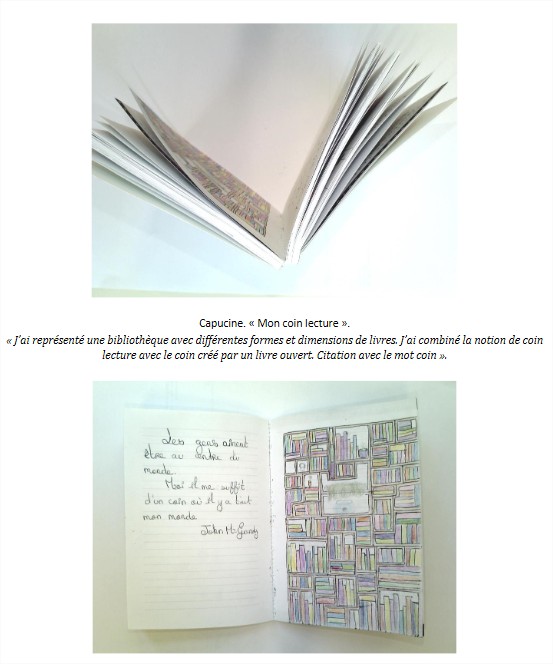 Capucine. « Mon coin lecture ».
« J'ai représenté une bibliothèque avec différentes formes et dimensions de livres. J'ai combiné la notion de coin
lecture avec le coin créé par un livre ouvert. Citation avec le mot coin ».
Les gens aiment
être au centre du
monde.
Moi il me suffit
d'un coin où il y a tout
mon monde
John